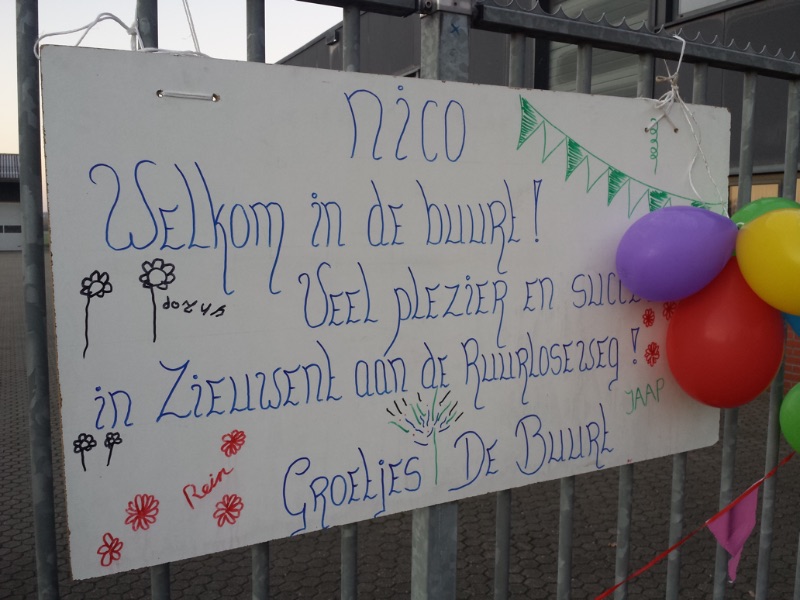 NICO
WELKOM in de buurt!
VEEL PLEZIER EN
in ZIEUWENT aan de RUURLOSEWEG!
JAAP
Rein
GROETJES DE BUURT